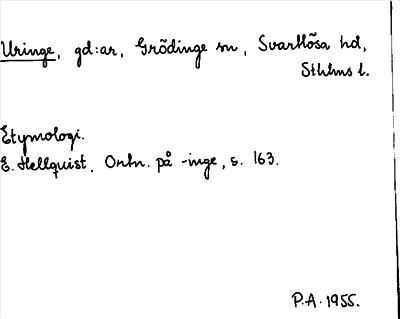 Uringe, gd:ar, Grödinge sn, Svartlösa hd,
Sthlms l.
Etymologi.
E. Hellquist, Ortn. på -inge, s. 163.
P.A. 1955.